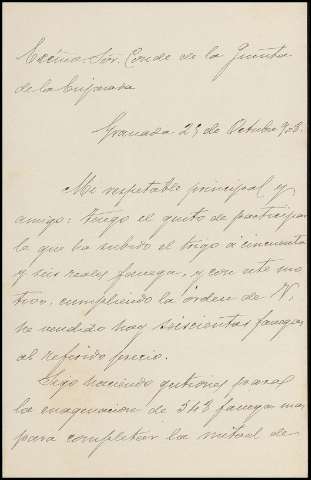 Excmo. Sor. Conde de la Quinta
de la Enjarada
Granada 25 de Octubre 903.
Mi respetable principal y
amigo: tengo el gusto de participar
le que ha subido el trigo á cincuenta
y seis reales fanega, y con este mo
tivo, cumpliendo la orden de V,
he vendido hoy seiscientas fanegas
al referido precio.
Sigo haciendo gestiones para
la enagenacion de 343 fanegas mas
para completar la mitad de